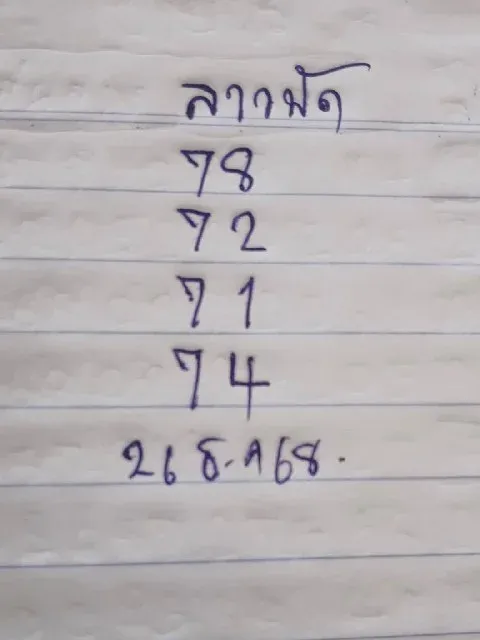 ลาวพัด
78
72
71
74
26 ธ.ค 68.